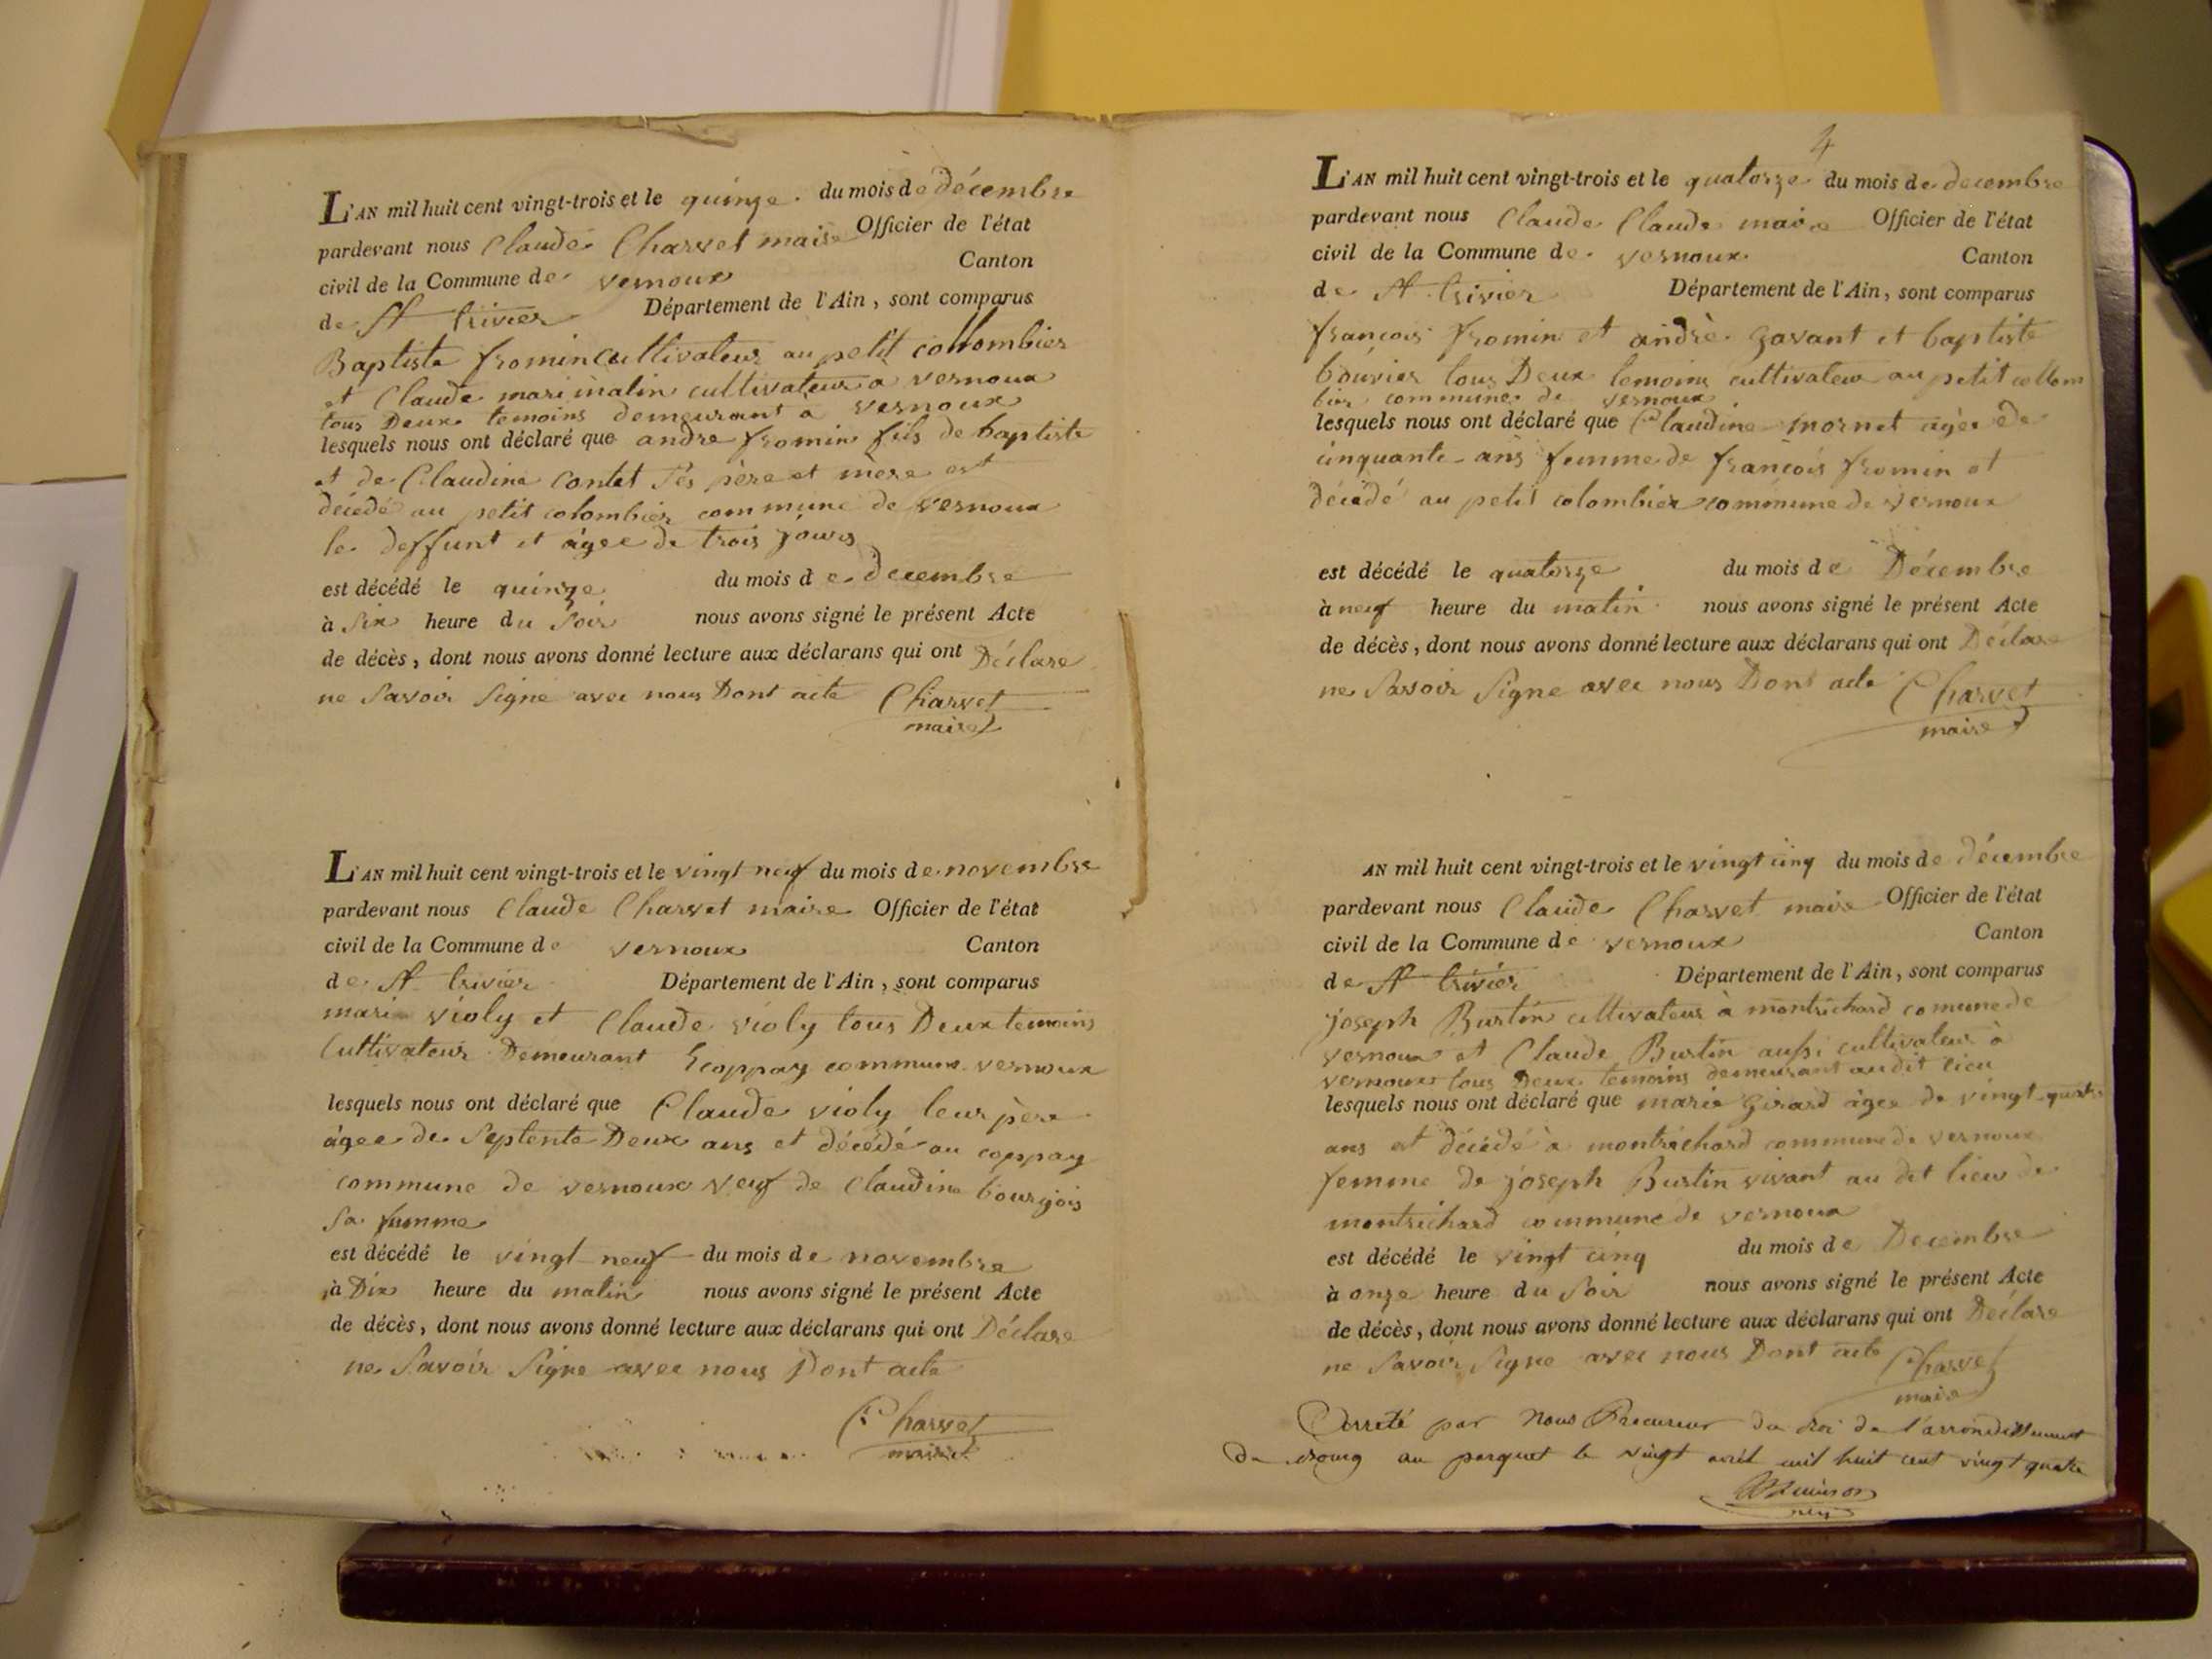 L'AN mil huit cent vingt-trois et le quinze du mois de décembre
pardevant nous Claude Charvet maire Officier de l'état
civil de la Commune de vernoux Canton
de St trivier Département de l'Ain, sont comparus
Baptiste fromin cultivateur au petit collombier
et Claude mari matin cultivateur à vernoux
tous Deux temoins demeurant a vernoux
lesquels nous ont déclaré que andre fromin fils de baptiste
et de Claudine contet Ses père et mère est
décédé au petit colombier commune de vernoux
le deffunt et âgee de trois jours
est décédé le quinze du mois de decembre
à Six heure du Soir nous avons signé le présent Acte
de décès, dont nous avons donné lecture aux déclarans qui ont Déclare
ne Savoir Signe avec nous Dont acte Charvet
maire
L'AN mil huit cent vingt-trois et le vingt neuf du mois de novembre
pardevant nous Claude Charvet maire Officier de l'état
civil de la Commune de vernoux Canton
de St trivier Département de l'Ain, sont comparus
mari violy et Claude violy tous Deux temoins
Cultivateur Demeurant commune vernoux
lesquels nous ont déclaré que Claude violy leur père
âgee de Septente Deux ans et décédé au coppay
commune de vernoux veuf de Claudine bourgois
Sa femme
est décédé le vingt neuf du mois de novembre
à Dix heure du matin nous avons signé le présent Acte
de décès, dont nous avons donné lecture aux déclarans qui ont Déclare
ne Savoir Signe avec nous Dont acte
Charvet
maire
4
L'AN mil huit cent vingt-trois et le quatorze du mois de decembre
pardevant nous Claude Claude maire Officier de l'état
civil de la Commune de vernoux Canton
de St trivier Département de l'Ain, sont comparus
françois fromin et andrè gavant et baptiste
bouvier tous Deux temoins cultivateur au petit collom
bier commune de vernoux
lesquels nous ont déclaré que Claudine mornet agèe de
cinquante ans femme de françois fromin et
décédé au petit colombier commune de vernoux
est décédé le quatorze du mois de Décembre
à neuf heure du matin nous avons signé le présent Acte
de décès, dont nous avons donné lecture aux déclarans qui ont Déclare
ne Savoir Signe avec nous Dont acte Charvet
maire
AN mil huit cent vingt-trois et le vingt cinq du mois de décembre
pardevant nous Claude Charvet maire Officier de l'état
civil de la Commune de vernoux Canton
de St trivier Département de l'Ain, sont comparus
joseph Burtin cultivateur à montrichard comune de
vernoux et Claude Burtin aussi cultivateur à
vernoux tous Deux temoins demeurant audit lieu
lesquels nous ont déclaré que marie Girard âgee de vingt quatre
ans et décédé à montrichard commune de vernoux
femme de joseph Burtin vivant au dit lieu de
montrichard commune de vernoux
est décédé le vingt cinq du mois de Decembre
à onze heure du Soir nous avons signé le présent Acte
de décès, dont nous avons donné lecture aux déclarans qui ont Déclare
ne Savoir Signe avec nous Dont acte Charvet
maire
arreté par Nous Procureur du Roi de l'arrondissement
de Bourg au parquet le vingt avril mil huit cent vingt quatre